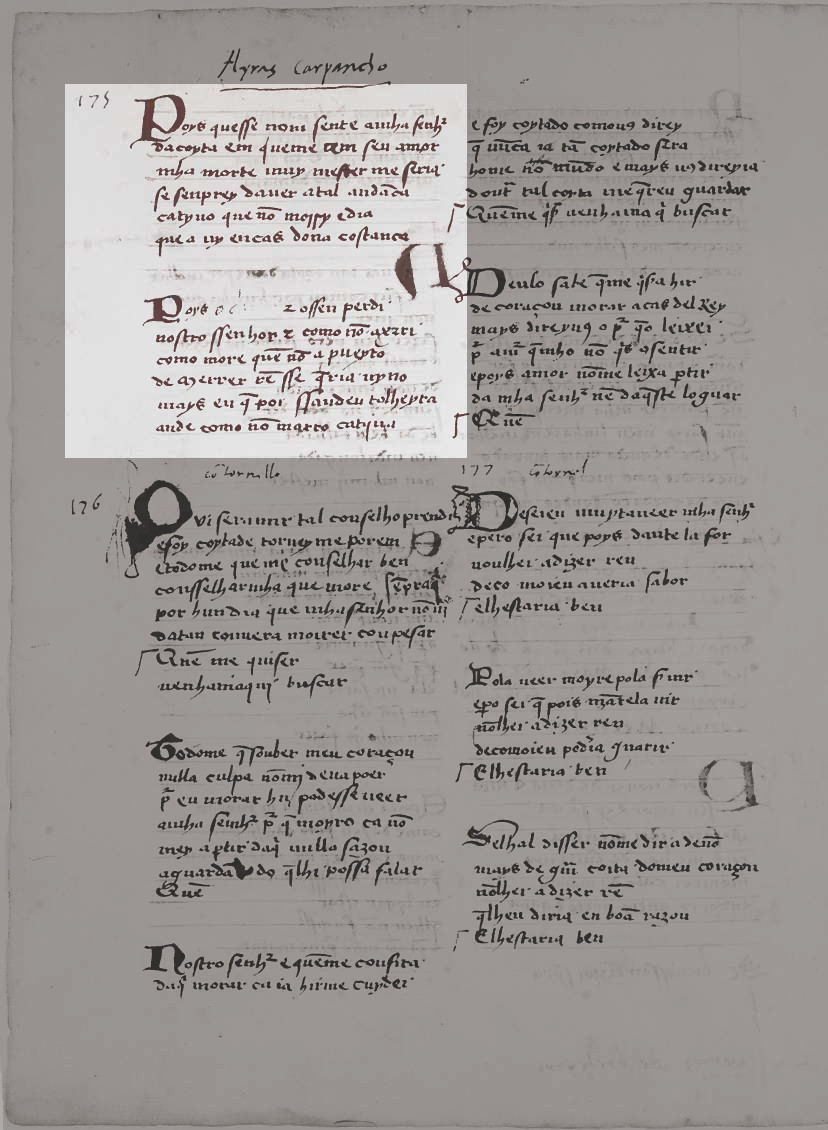 Ayras Carpancho
175
Poys quesse nom sente amha senhᵃ
dacoyta em queme tem seu amor
mha morte muy mester me seria
se senprey daver atal andāca
catyuo que nō moyry edia
que a uy encas dona costança
Poys ossen perdi
nostro ssenhor
como more quē nō a
de
mays eu q̄ por ssandeu tolheyta
ande como nō mato catiuo
e foy coytado comou9 direy
q̄ nūca ia tā coytado sera
home nō mūdo e mays u9 direy ia
dout̄ tal coyta me q̄reu guardar
Quēme q̄s̄ uenhamaq̄ buscar
Deulo sabe q̄me q̄s̄a hir
de coraçou morar acas del Rey
mays direyu9 o p̄ q̄o leixei
p̄ am̄ q̄mho nō q̄s osentir
epoys amor nōme leixa ptir
da mha senhᵃ nē daq̄ste loguar
Quē
176
cō tornello
Qvi seramir tal conselho prendi
e foy coytade torneyme porem
etodome que me conselhar ben
consselharmha que more
por hun dia que mha senhor nō ui
datan convera moirer cou pesar
Quē me quiser
uenhamaqui buscar
Todome q̄ souber meu coraçou
nulla culpa nōmi deua poer
p̄ eu morar hu podesse ueer
amha senhᵃ p̄ q̄ moyro ca nō
mey a ptir daq̄ nulla sazou
aguardado q̄lhi possa falar
Quē
Nostro senhᵃ e quēme consira
daq̄ morar ca ia hirme cuydei
177
cō tornel
Deseieu muytaueer mha senhᵃ
epero sei que poys dante la for
noulhei adizer ren
deco moieu aueria sabor
elhestaria ben
Pola ueer moyre pola s̄uir
epo sei q̄ pois mātela uir
nōlhei adizer ren
decomoieu podia guarir
Elhestaria ben
Selhal disser nōmedir a denō
mays de guā coita domeu coraçou
nōlhei adizer rē
q̄lheu diria en boā razou
Elhestaria ben